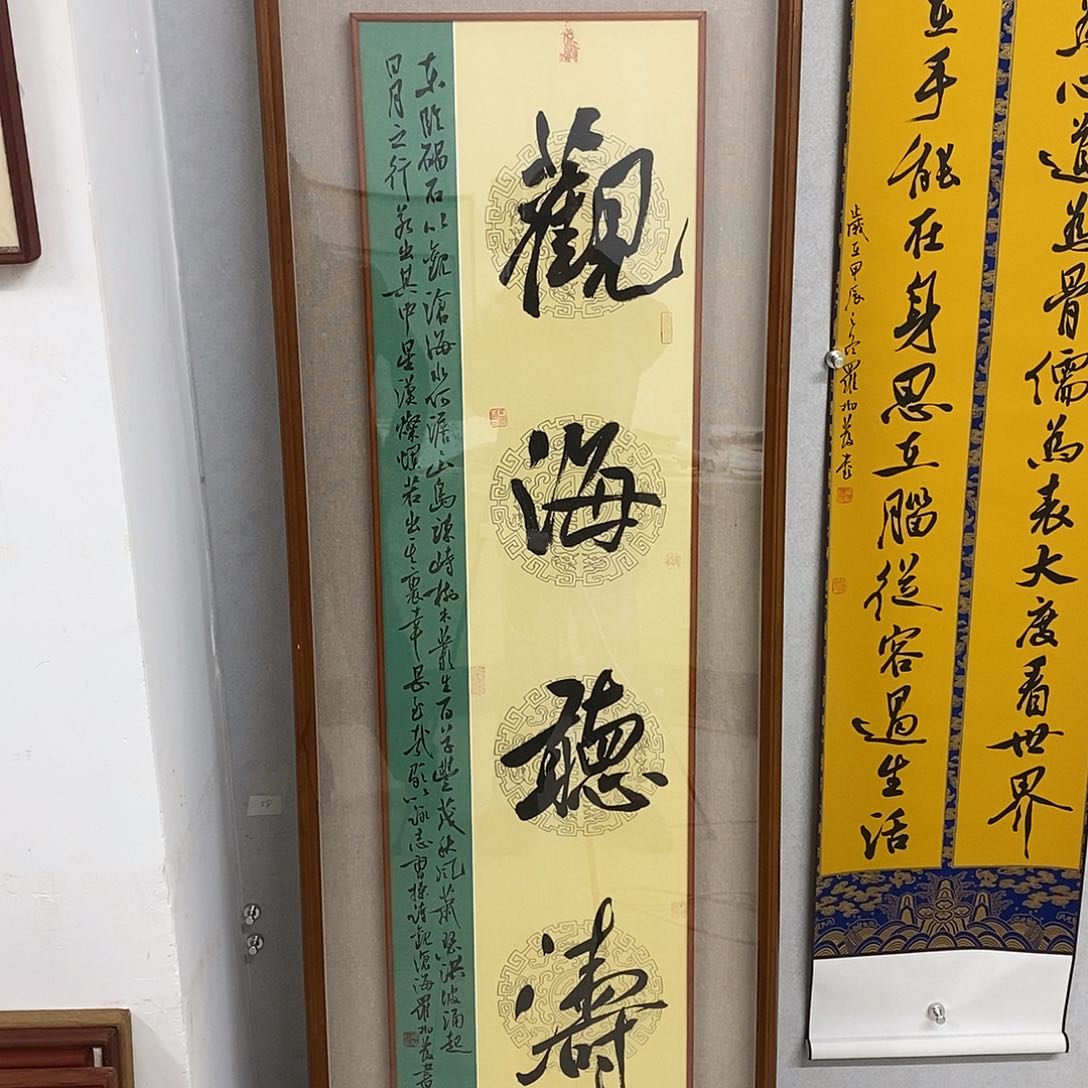 為心道為骨儒為表大度看世界
在手能在身思在腦從容過生活
歲在甲辰之冬羅
觀海聽濤
東臨碣石以觀滄海水何澹澹山島竦峙樹木叢生百草豐茂秋風蕭瑟洪波涌起
日月之行若出其中星漢燦爛若出其裏幸甚至哉歌以詠志曹操詩觀滄海羅書